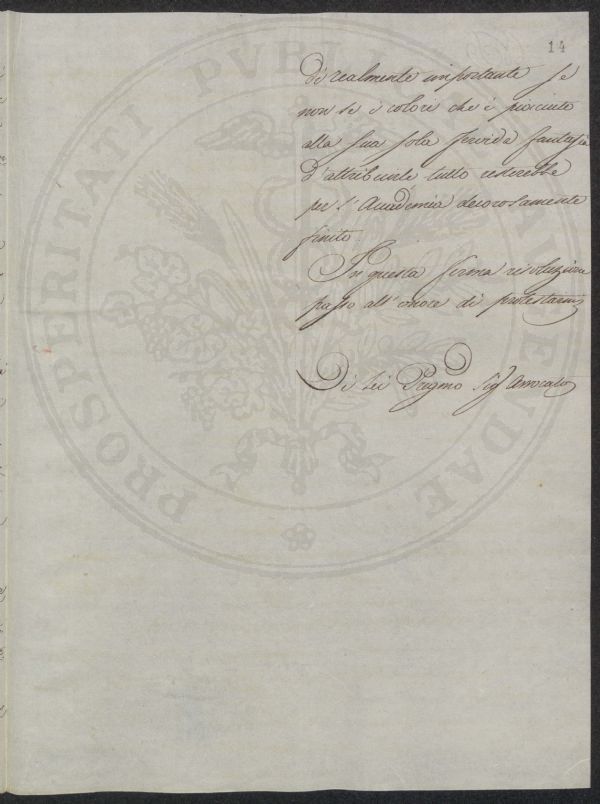 14
di realmente importante se
non se i colori che è piaciuto
alla sua sola fervida fantasia
d'attribuirle tutto resterebbe
per l'Accademia decorosamente
finito
In questa ferma risoluzione
passo all'onore di protestarmi
Di Lei Pregmo Sigr Avvocato
PROSPERITATI PVBLICAE AVGENDAE